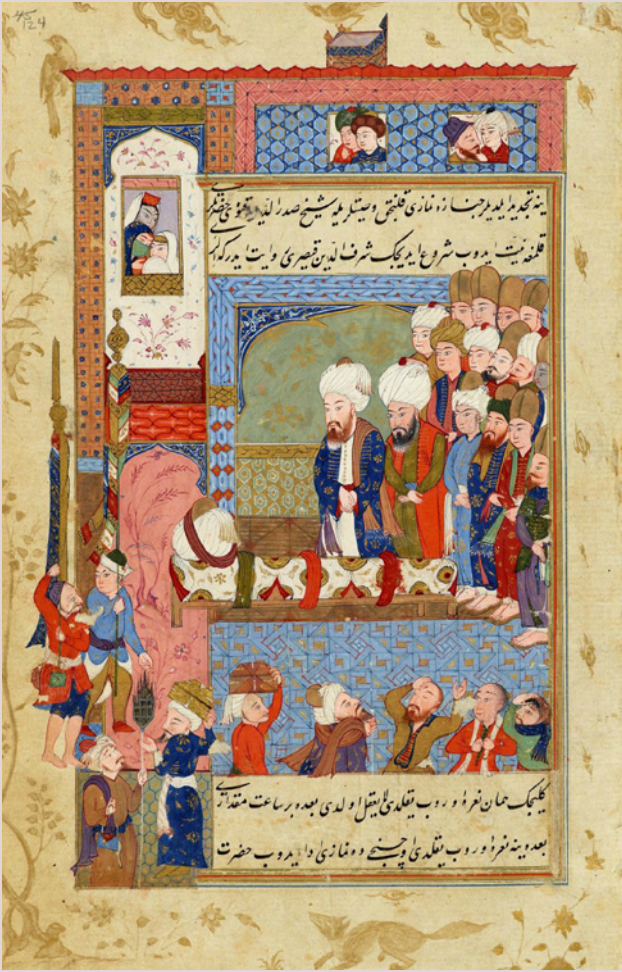 45
124
ینه تجدید ایلدیلر جنازه نمازی قلنجق وصیتلریله شیخ صدر الدین قونوی
قلمغه نیت ایدوب شروع ایدیجک شرف الدین قیصری روایت ایدرکه
کلیجک همان نعره اوروب یقلدی لایعقل اولدی بعده بر ساعت مقداری
بعده ینه نعره اوروب یقلدی نمازی ادا ایدوب حضرت